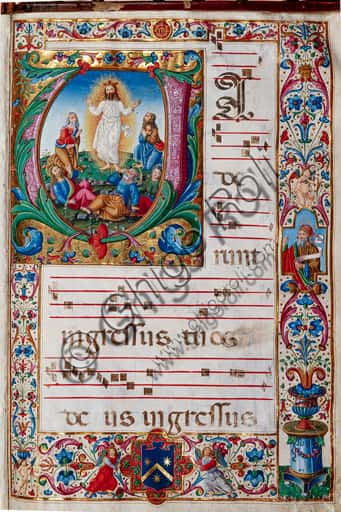 VI
de
runt
ingressus tuos
de us ingressus
© Ghigo Roli
www.ghigoroli.com